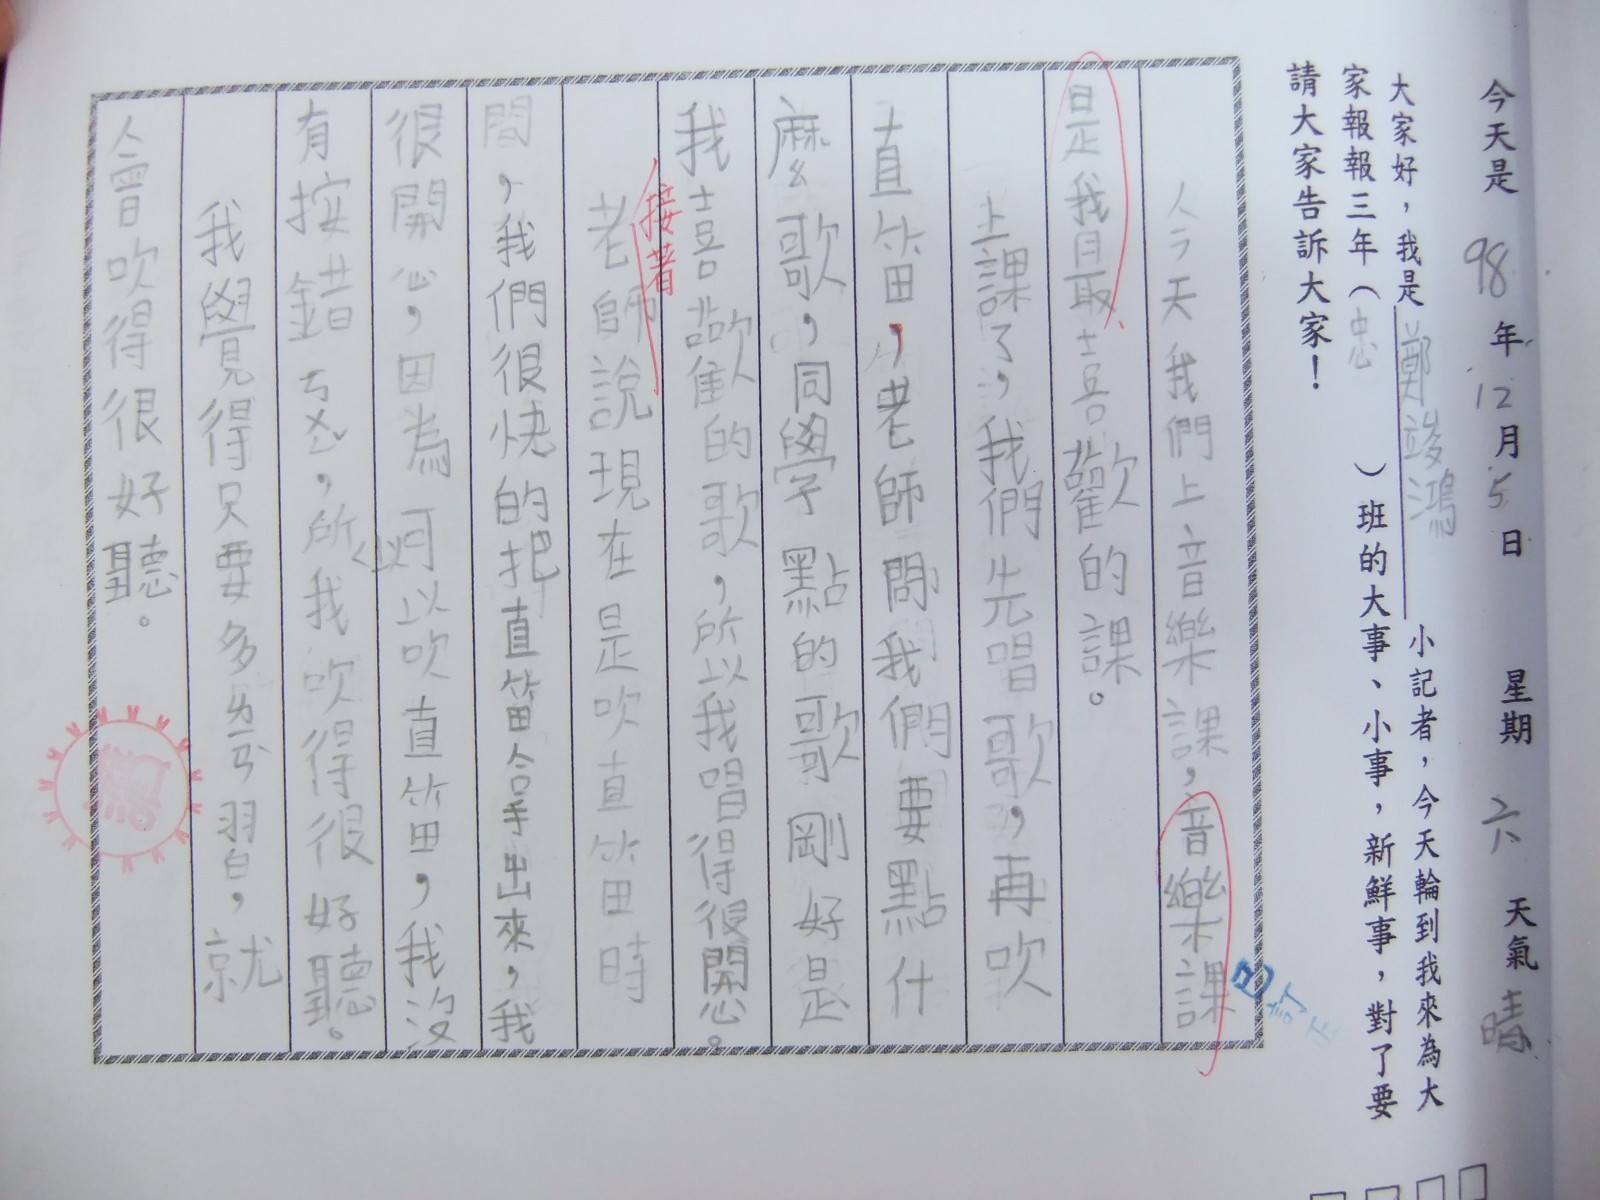 今天是 98 年 12 月 5 日 星期 六 天氣 晴
大家好，我是 鄭竣鴻 小記者，今天輪到我來為大
家報報三年（忠）班的大事、小事，新鮮事，對了要
請大家告訴大家！
今天我們上音樂課，音樂課
是我最喜歡的課。
上課了，我們先唱歌，再吹
直笛，老師問我們要點什
麼歌，同學點的歌剛好是
我喜歡的歌，所以我唱得很開心。
接著
老師說現在是吹直笛時
間，我們很快的把直笛拿出來，我
很開心，因為可以吹直笛，我沒
有按錯ㄉㄨㄥˋ，所以我吹得很好聽。
我覺得只要多ㄌㄧㄢˋ習，就
會吹得很好聽。
已訂正